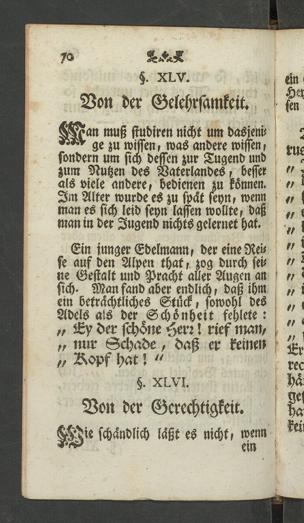 70
§. XLV.
Von der Gelehrsamkeit.
Man muß studiren nicht um dasjeni-
ge zu wissen, was andere wissen,
sondern um sich dessen zur Tugend und
zum Nutzen des Vaterlandes, besser
als viele andere, bedienen zu können.
Im Alter wurde es zu spät seyn, wenn
man es sich leid seyn lassen wollte, daß
man in der Jugend nichts gelernet hat.
Ein junger Edelmann, der eine Rei-
se auf den Alpen that, zog durch sei-
ne Gestalt und Pracht aller Augen an
sich. Man fand aber endlich, daß ihm
ein beträchtliches Stück, sowohl des
Adels als der Schönheit fehlete:
„ Ey der schöne Herr! rief man,
„ nur Schade, daß er keinen
„ Kopf hat! “
§. XLVI.
Von der Gerechtigkeit.
Wie schändlich läßt es nicht, wenn
ein